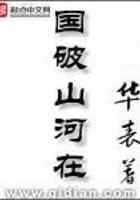 起点中文网
国破山河在
华表著
www.qidian.com